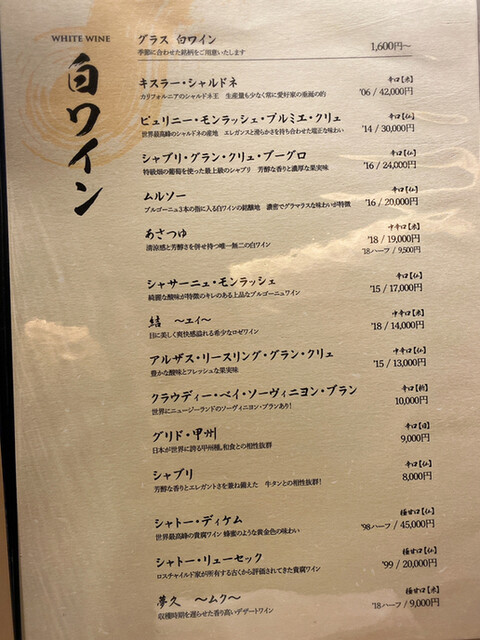 WHITE WINE
白ワイン
グラス 白ワイン
季節に合わせた銘柄をご用意いたします
1,600円~
キスラー・シャルドネ 辛口【米】
カリフォルニアのシャルドネ王 生産量も少なく常に愛好家の垂涎の的 '06 / 42,000円
ピュリニー・モンラッシェ・プルミエ・クリュ 辛口【仏】
世界最高峰のシャルドネの産地 エレガンスと滑らかさを持ち合わせた端正な味わい '14 / 30,000円
シャブリ・グラン・クリュ・ブーグロ 辛口【仏】
特級畑の葡萄を使った最上級のシャブリ 芳醇な香りと濃厚な果実味 '16 / 24,000円
ムルソー 辛口【仏】
ブルゴーニュ3本の指に入る白ワインの銘醸地 濃密でグラマラスな味わいが特徴 '16 / 20,000円
あさつゆ 中辛口【米】
清涼感と芳醇さを併せ持つ唯一無二の白ワイン '18 / 19,000円
'18ハーフ / 9,500円
シャサーニュ・モンラッシェ 辛口【仏】
綺麗な酸味が特徴のキレのある上品なブルゴーニュワイン '15 / 17,000円
結 ~ユイ~ 中辛口【米】
目に美しく爽快感溢れる希少なロゼワイン '18 / 14,000円
アルザス・リースリング・グラン・クリュ 中辛口【仏】
豊かな酸味とフレッシュな果実味 '15 / 13,000円
クラウディー・ベイ・ソーヴィニヨン・ブラン 辛口【新】
世界にニュージーランドのソーヴィニヨン・ブランあり! 10,000円
グリド・甲州 辛口【日】
日本が世界に誇る甲州種。和食との相性抜群 9,000円
シャブリ 辛口【仏】
芳醇な香りとエレガントさを兼ね備えた 牛タンとの相性抜群! 8,000円
シャトー・ディケム 極甘口【仏】
世界最高峰の貴腐ワイン 蜂蜜のような黄金色の味わい '98ハーフ / 45,000円
シャトー・リューセック 極甘口【仏】
ロスチャイルド家が所有する古くから評価されてきた貴腐ワイン '99 / 20,000円
夢久 ~ムク~ 極甘口【米】
収穫時期を遅らせた香り高いデザートワイン '18ハーフ / 9,000円